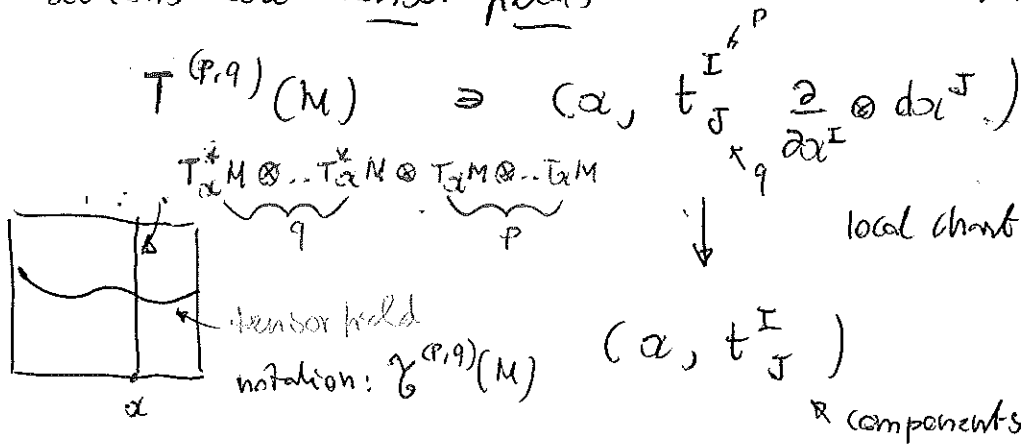 sections are tensor fields
T^{(p,q)}(M) ∋ (x, t^I_J ∂/∂x^I ⊗ dx^J)
p
q
T*_xM ⊗ .. T*_xM ⊗ T_xM ⊗ .. T_xM
q p
local chart
tensor field
(x, t^I_J)
notation: 𝒯^{(p,q)}(M)
components
x